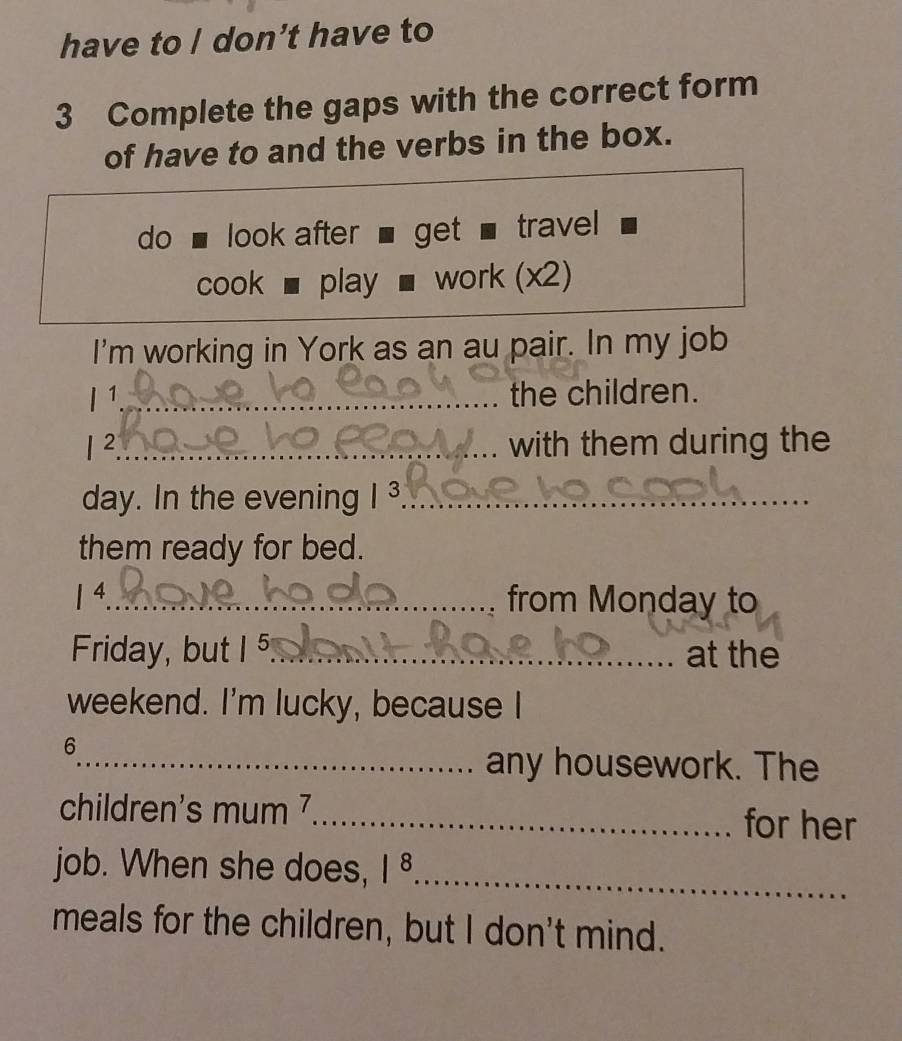 have to / don't have to
3 Complete the gaps with the correct form
of have to and the verbs in the box.
do ■ look after ■ get ■ travel ■
cook ■ play ■ work (x2)
I'm working in York as an au pair. In my job
I 1 have to look after the children.
I 2 have to play with them during the
day. In the evening I 3 have to cook
them ready for bed.
I 4 have to do from Monday to
Friday, but I 5 don't have to work at the
weekend. I'm lucky, because I
6 any housework. The
children's mum 7 for her
job. When she does, I 8
meals for the children, but I don't mind.